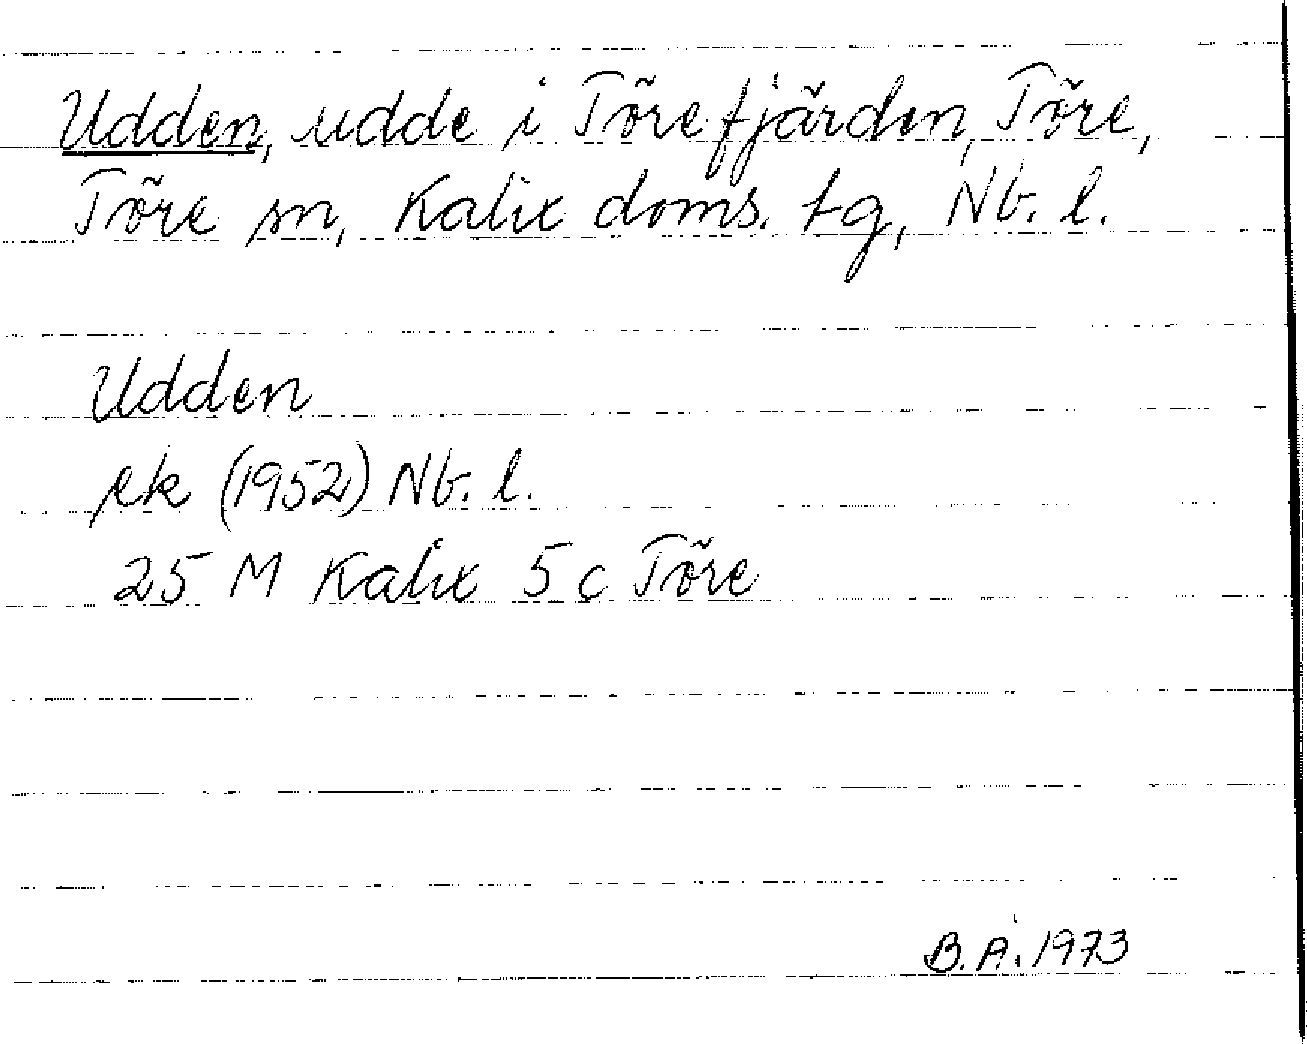 Udden, udde i Törefjärden, Töre,
Töre sn, Kalix doms. tg, Nb. l.
Udden
ek (1952) Nb. l.
25 M Kalix 5 c Töre
B.Å. 1973